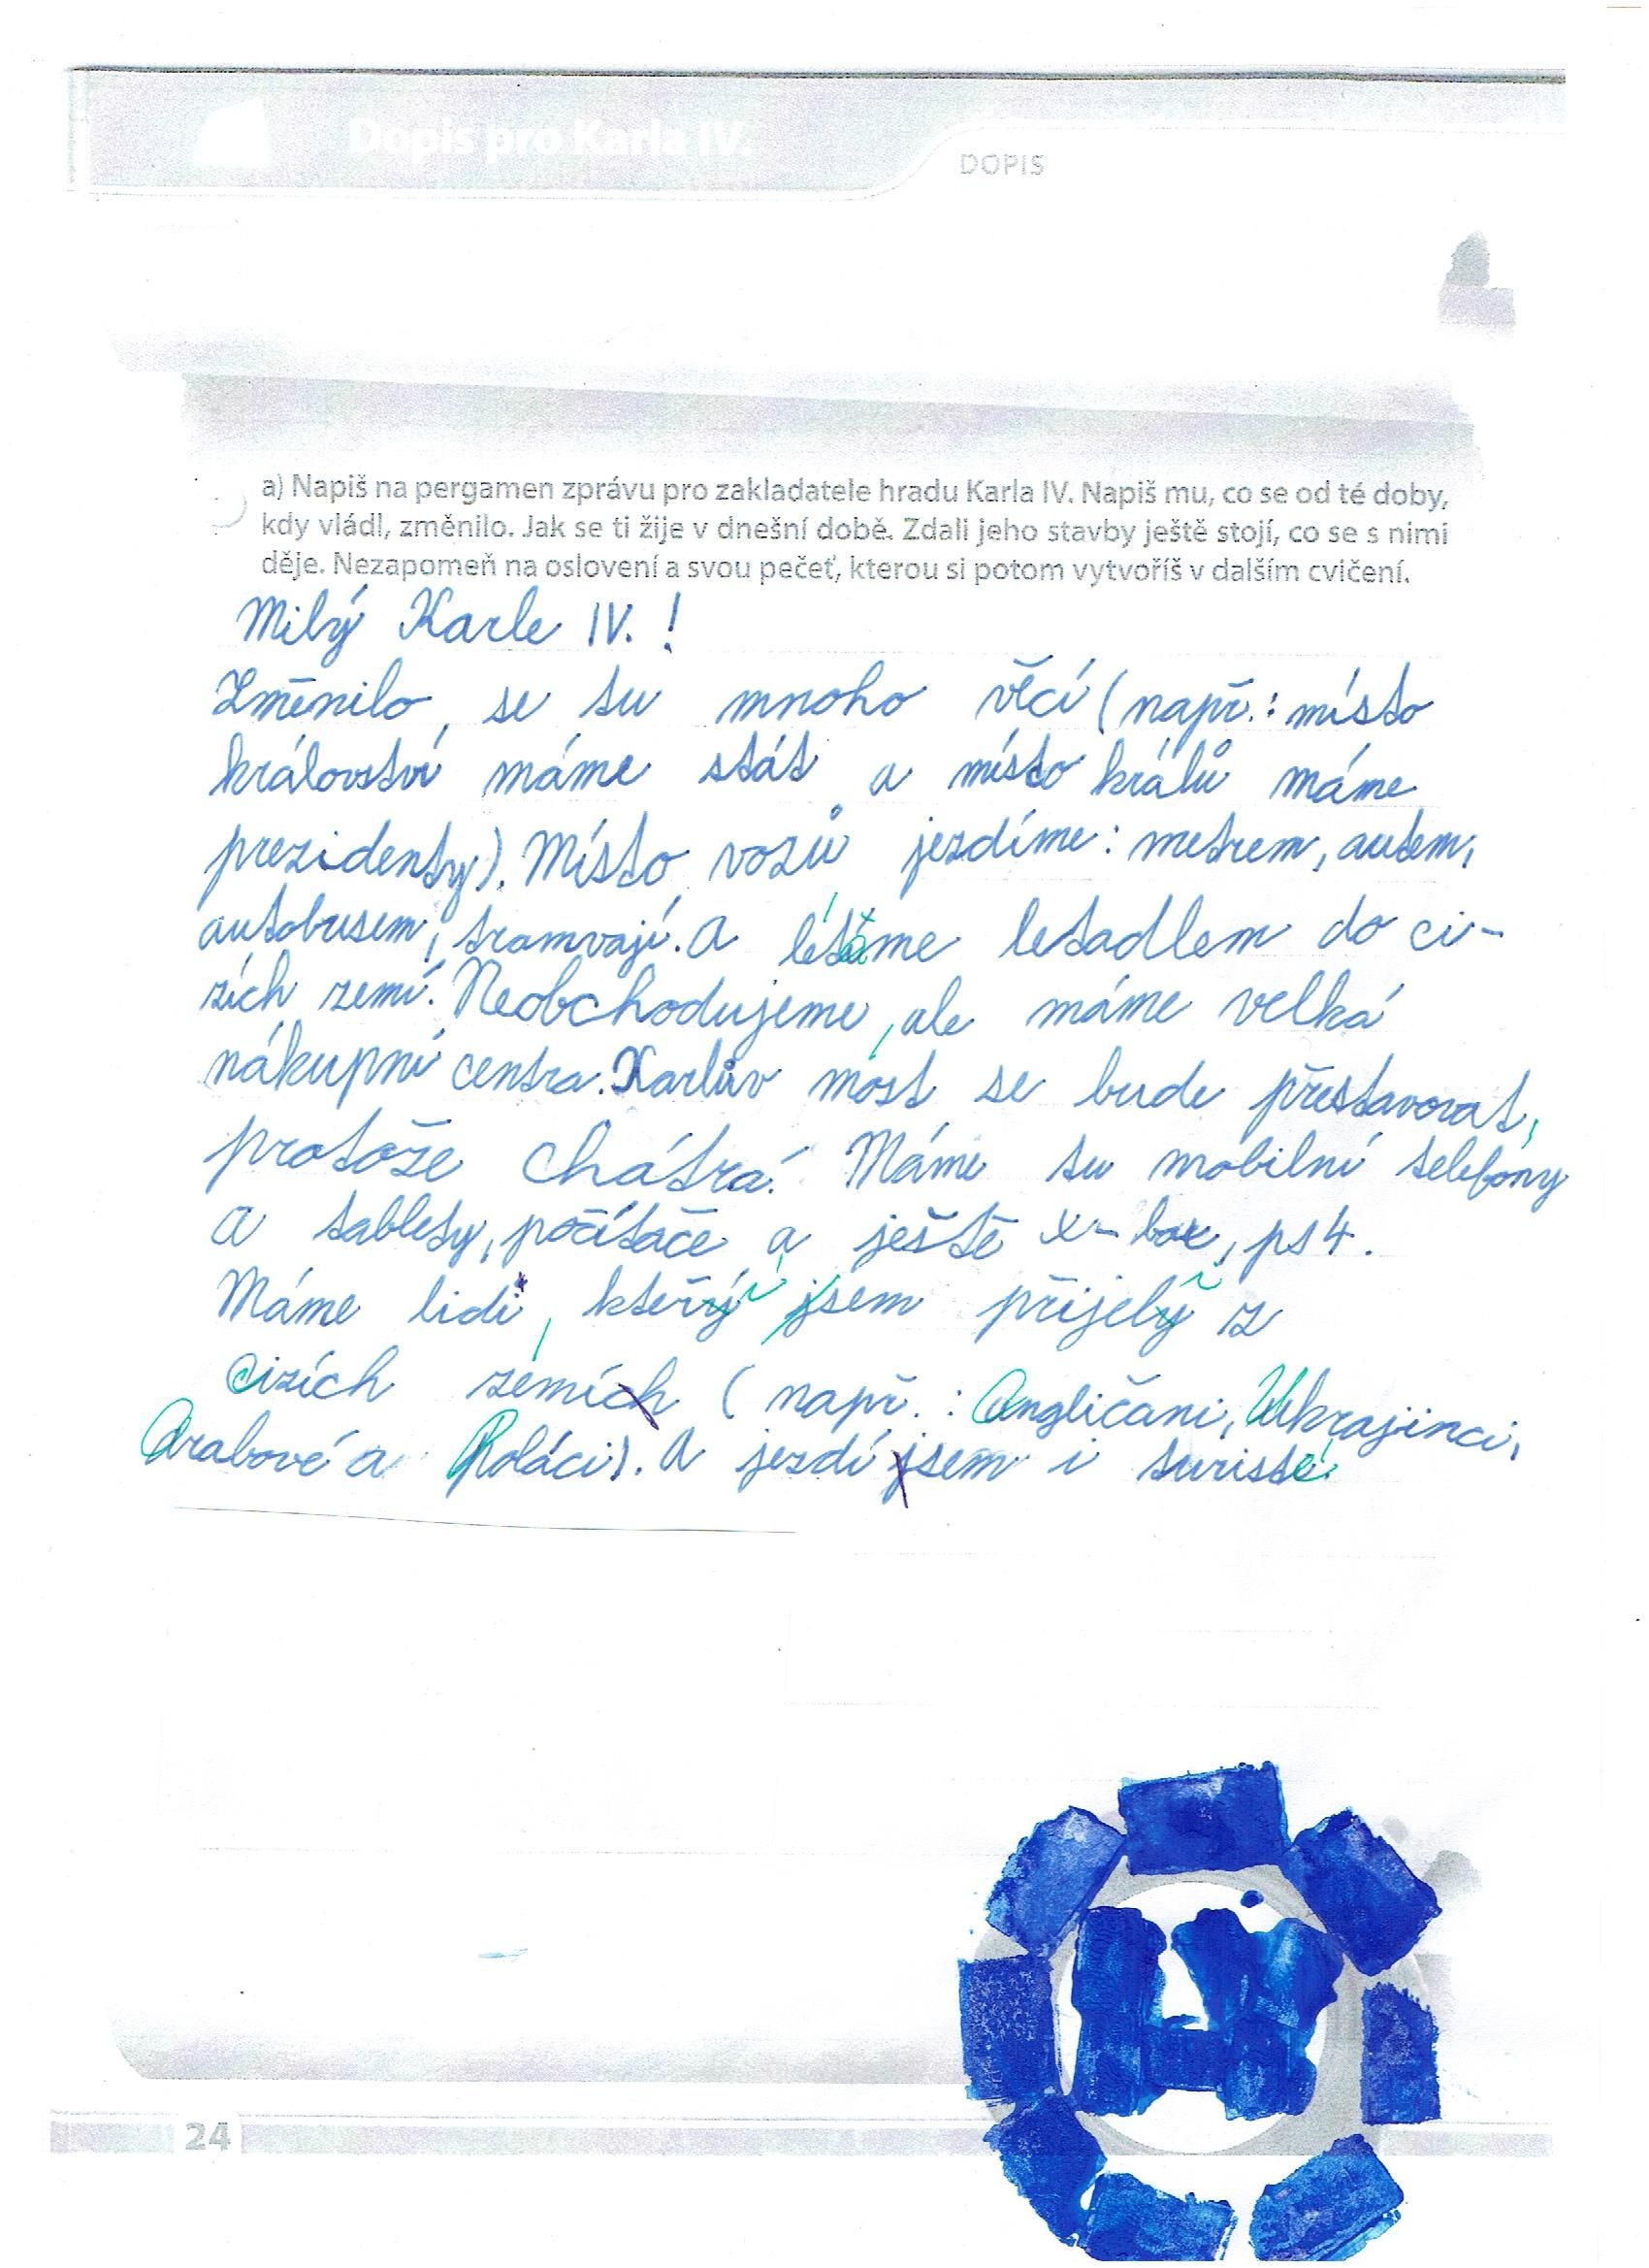 Dopis pro Karla IV.
DOPIS
a) Napiš na pergamen zprávu pro zakladatele hradu Karla IV. Napiš mu, co se od té doby,
kdy vládl, změnilo. Jak se ti žije v dnešní době. Zdali jeho stavby ještě stojí, co se s nimi
děje. Nezapomeň na oslovení a svou pečeť, kterou si potom vytvoříš v dalším cvičení.
Milý Karle IV. !
Změnilo se tu mnoho věcí (např.: místo
království máme stát a místo králů máme
prezidenty). Místo vozů jezdíme: metrem, autem,
autobusem, tramvají. A létáme letadlem do ci-
zích zemí. Neobchodujeme, ale máme velká
nákupní centra. Karlův most se bude přestavovat,
protože chátrá. Máme tu mobilní telefony
a tablety, počítače a ještě x-box, ps4.
Máme lidi, kteří sem přijeli z
cizích zemí (např.: Angličani, Ukrajinci,
Arabové a Poláci). A jezdí sem i turisté.
24